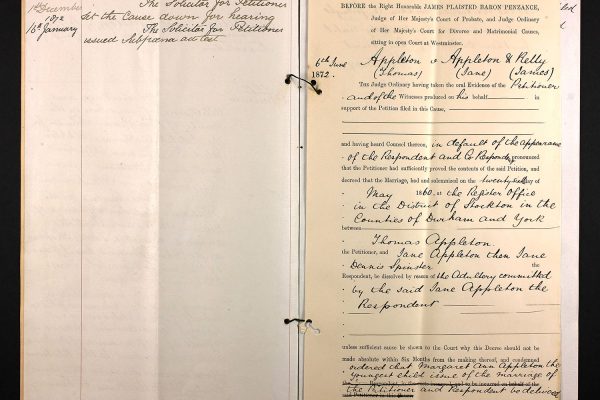 December
The Solicitor for Petitioner
set the Cause down for hearing
1872
16th January
The Solicitor for Petitioner
issued Subpœna
led
d
BEFORE the Right Honorable JAMES PLAISTED BARON PENZANCE,
Judge of Her Majesty's Court of Probate, and Judge Ordinary
of Her Majesty's Court for Divorce and Matrimonial Causes,
sitting in open Court at Westminster.
6th June
1872.
Appleton v Appleton & Kelly
(Thomas) (Jane) (James)
THE JUDGE ORDINARY having taken the oral Evidence of the Petitioner
and of the Witnesses produced on his behalf in
support of the Petition filed in this Cause,
and having heard Counsel thereon, in default of the appearance
of the Respondent and Co Respondt pronounced
that the Petitioner had sufficiently proved the contents of the said Petition, and
decreed that the Marriage, had and solemnized on the day of
May 1860. at the Register Office
in the District of Stockton in the
Counties of Durham and York
between
Thomas Appleton
the Petitioner, and Jane Appleton then Jane
Dennis Spinster the
Respondent, be dissolved by reason of the Adultery committed
by the said Jane Appleton the
Respondent
unless sufficient cause be shown to the Court why this Decree should not be
made absolute within Six Months from the making thereof, and condemned
ordered that Margaret Ann Appleton the
youngest child issue of the marriage of
the Petitioner and Respondent be delivered